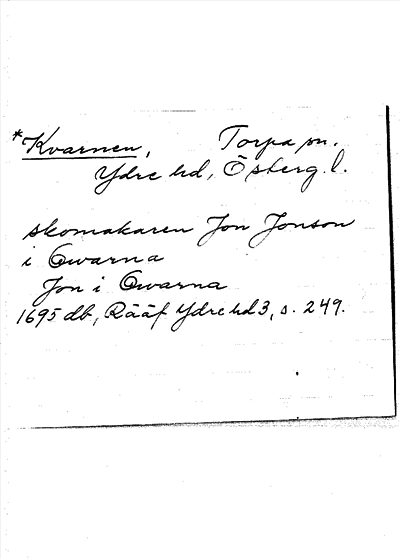 *Kvarnen, Torpa sn.
Ydre hd, Österg. l.
skomakaren Jon Jonson
i Qwarna
Jon i Qwarna
1695 db, Rääf Ydre hd 3, s. 249.